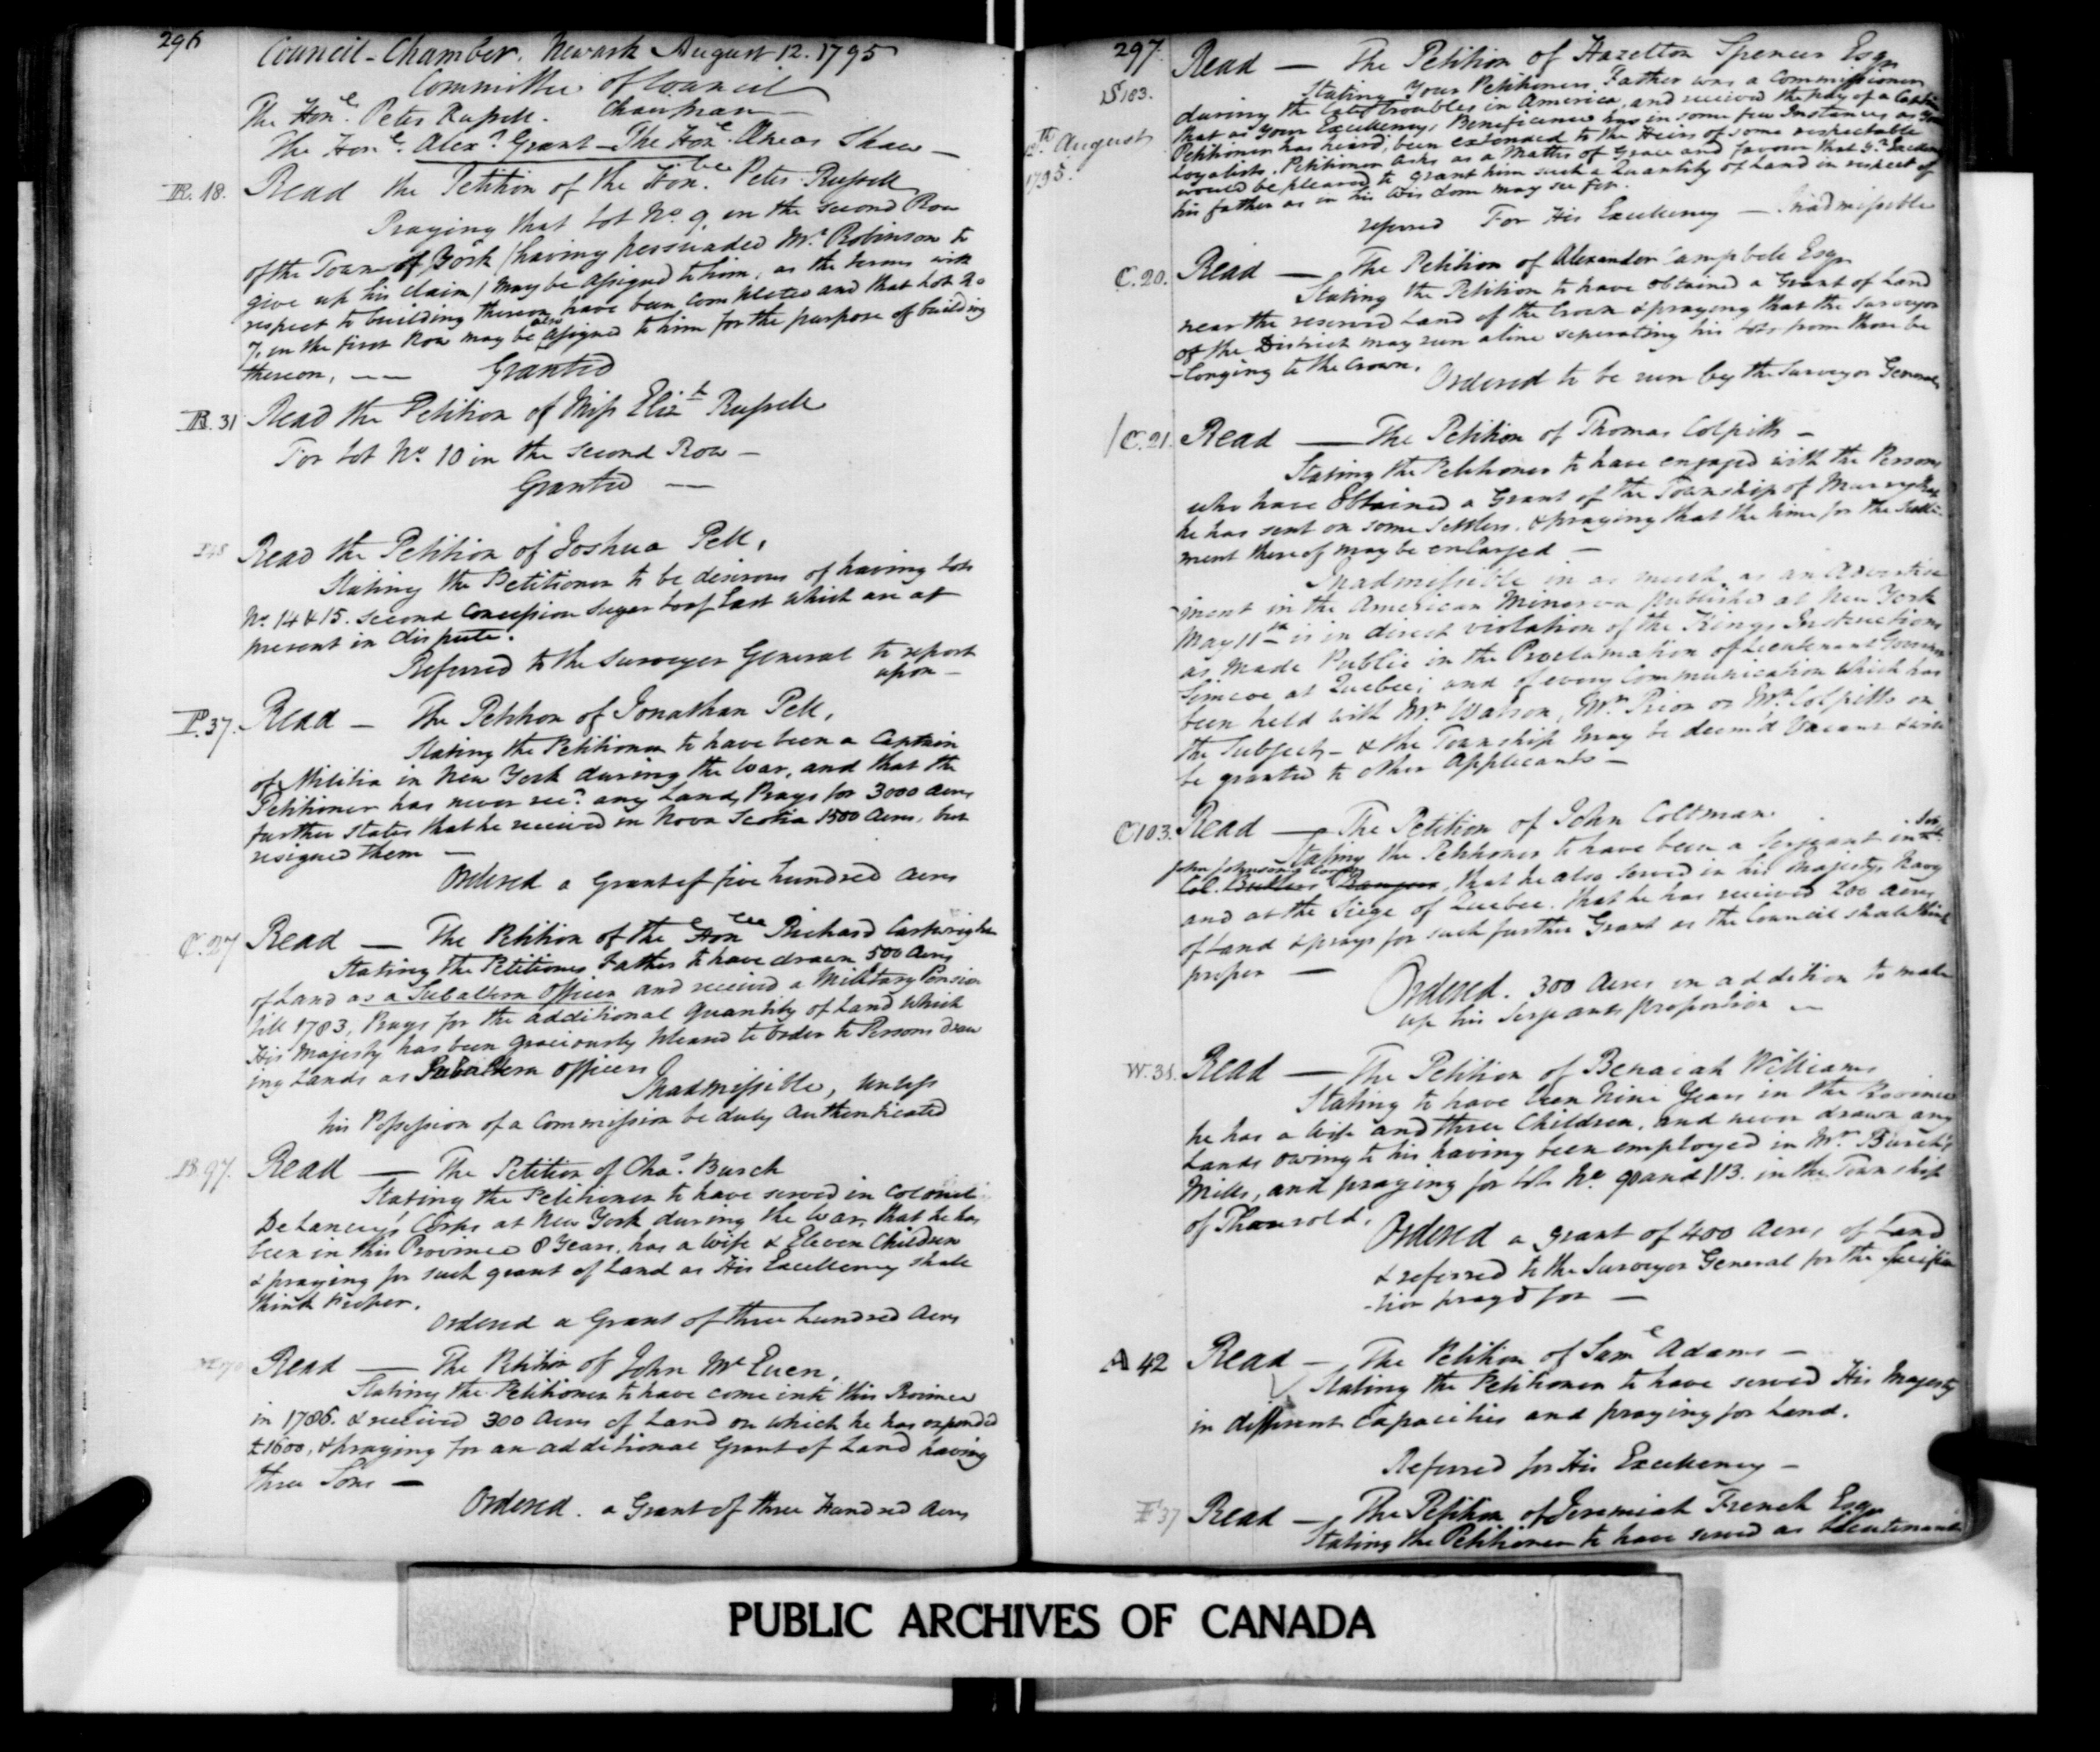 296
Council-Chamber. Newark August 12. 1795
Committee of Council
The Hon.e Peter Russell. Chairman
The Hon.e Alex.r Grant - The Hon.e Æneas Shaw -
R. 18. Read the Petition of the Hon.ble Peter Russell
Praying that Lot No. 9, in the second Row
of the Town of York (having persuaded Mr. Robinson to
give up his claim) may be assigned to him, as the terms with
respect to building thereon have been completed and that Lot No
7, in the first Row may be also assigned to him for the purpose of building
thereon, — Granted
R. 31 Read the Petition of Miss Eliz.h Russell
For Lot No. 10 in the second Row -
Granted —
Read the Petition of Joshua Pell,
Stating the Petitioner to be desirous of having Lots
No. 14 & 15. second Concession Sugar Loaf East which are at
present in dispute.
Referred to the Surveyor General to report
upon -
P. 37. Read - The Petition of Jonathan Pell,
Stating the Petitioner to have been a Captain
of Militia in New York during the War, and that the
Petitioner has never rec.d any Land, Prays for 3000 Acres
further states that he received in Nova Scotia 1500 Acres, but
resigned them -
Ordered a Grant of five hundred Acres
C. 27 Read — The Petition of the Hon.ble Richard Cartwright
Stating the Petitioners Father to have drawn 500 Acres
of Land as a Subaltern Officer and received a Military Pension
till 1783, Prays for the additional quantity of Land which
His Majesty has been graciously pleased to order to Persons draw
ing Lands as Subaltern Officers
Inadmissible, unless
his Possession of a Commission be duly Authenticated
B 97. Read — The Petition of Cha.s Burch
Stating the Petitioner to have served in Colonel
DeLancey's Corps at New York during the War, that he has
been in this Province 8 Years, has a Wife & Eleven Children
& praying for such grant of Land as His Excellency shall
think proper.
Ordered a Grant of three hundred Acres
Read — The Petition of John McEuen,
Stating the Petitioner to have come into this Province
in 1786. & received 300 Acres of Land on which he has expended
£1600, & praying for an additional Grant of Land having
three Sons -
Ordered. a Grant of three Hundred Acres
297.
12th August
1795.
S 103. Read — The Petition of Hazelton Spencer Esqr
Stating Your Petitioners Father was a Commissioner
during the late Troubles in America, and received the pay of a Captain
that as Your Excellency's Beneficence has in some few Instances as Your
Petitioner has heard, been extended to the Heirs of some respectable
Loyalists, Petitioner asks as a Matter of Grace and favour that Yr. Excellency
would be pleased to grant him such a Quantity of Land in respect of
his father as in his Wisdom may see fit.
referred For His Excellency — Inadmissible
C. 20. Read — The Petition of Alexander Campbell Esqr
Stating the Petition to have obtained a Grant of Land
near the reserved Land of the Crown & praying that the Surveyor
of the District may run a line seperating his Lots from those be
-longing to the Crown.
Ordered to be run by the Surveyor General,
C. 21. Read — The Petition of Thomas Colpitts -
Stating the Petitioner to have engaged with the Persons
who have Obtained a Grant of the Township of Murray that
he has sent on some Settlers, & praying that the time for the Settle-
ment thereof may be enlarged -
Inadmissible in as much as an Advertise
ment in the American Minerva published at New York
May 11th is in direct violation of the Kings Instructions
as made Public in the Proclamation of Lieutenant Governor
Simcoe at Quebec; and of every Communication which has
been held with Mr. Watson, Mr. Prior or Mr. Colpitts on
the Subject - & the Township may be deem'd Vacant & will
be granted to other Applicants -
C 103. Read — The Petition of John Coltman.
Stating the Petitioner to have been a Serjeant in Sir
John Johnson's Corps
Col. Butlers Rangers, that he also served in his Majesty's Navy
and at the Siege of Quebec. that he has received 200 Acres
of Land & prays for such further Grant as the Council shall think
proper —
Ordered. 300 Acres in addition to make
up his Serjeants proportion -
W. 31. Read — The Petition of Benaiah Williams
Stating to have been Nine Years in the Province
he has a Wife and three Children, and never drawn any
Lands owing to his having been employed in Mr. Burch's
Mills, and praying for Lots No. 90 and 113. in the Township
of Thourold.
Ordered a grant of 400 Acres of Land
& referred to the Surveyor General for the Specifica
-tion pray'd for —
A 42 Read — The Petition of Sam.l Adams -
Stating the Petitioner to have served His Majesty
in different Capacities and praying for Land.
Referred for His Excellency -
F 37 Read — The Petition of Jeremiah French Esqr
Stating the Petitioner to have served as Lieutenant
PUBLIC ARCHIVES OF CANADA